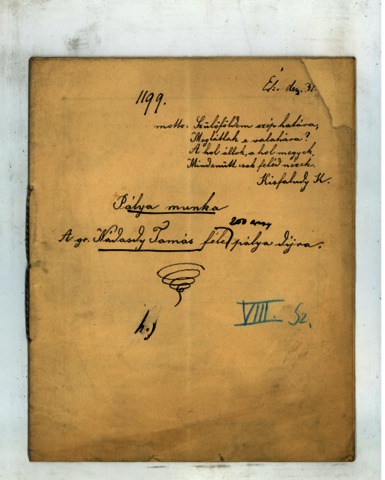 Érk. dez. 31.
1199.
motto: Szülőföldem szép határa,
Meglátlak e valahára?
A hol állok, a hol megyek,
Mindenütt csak feléd nézek.
Kisfaludy K.
Pálya munka
200 arany
A gr. Nádasdy Tamás féle pálya díjra.
h.)
VIII. Sz.